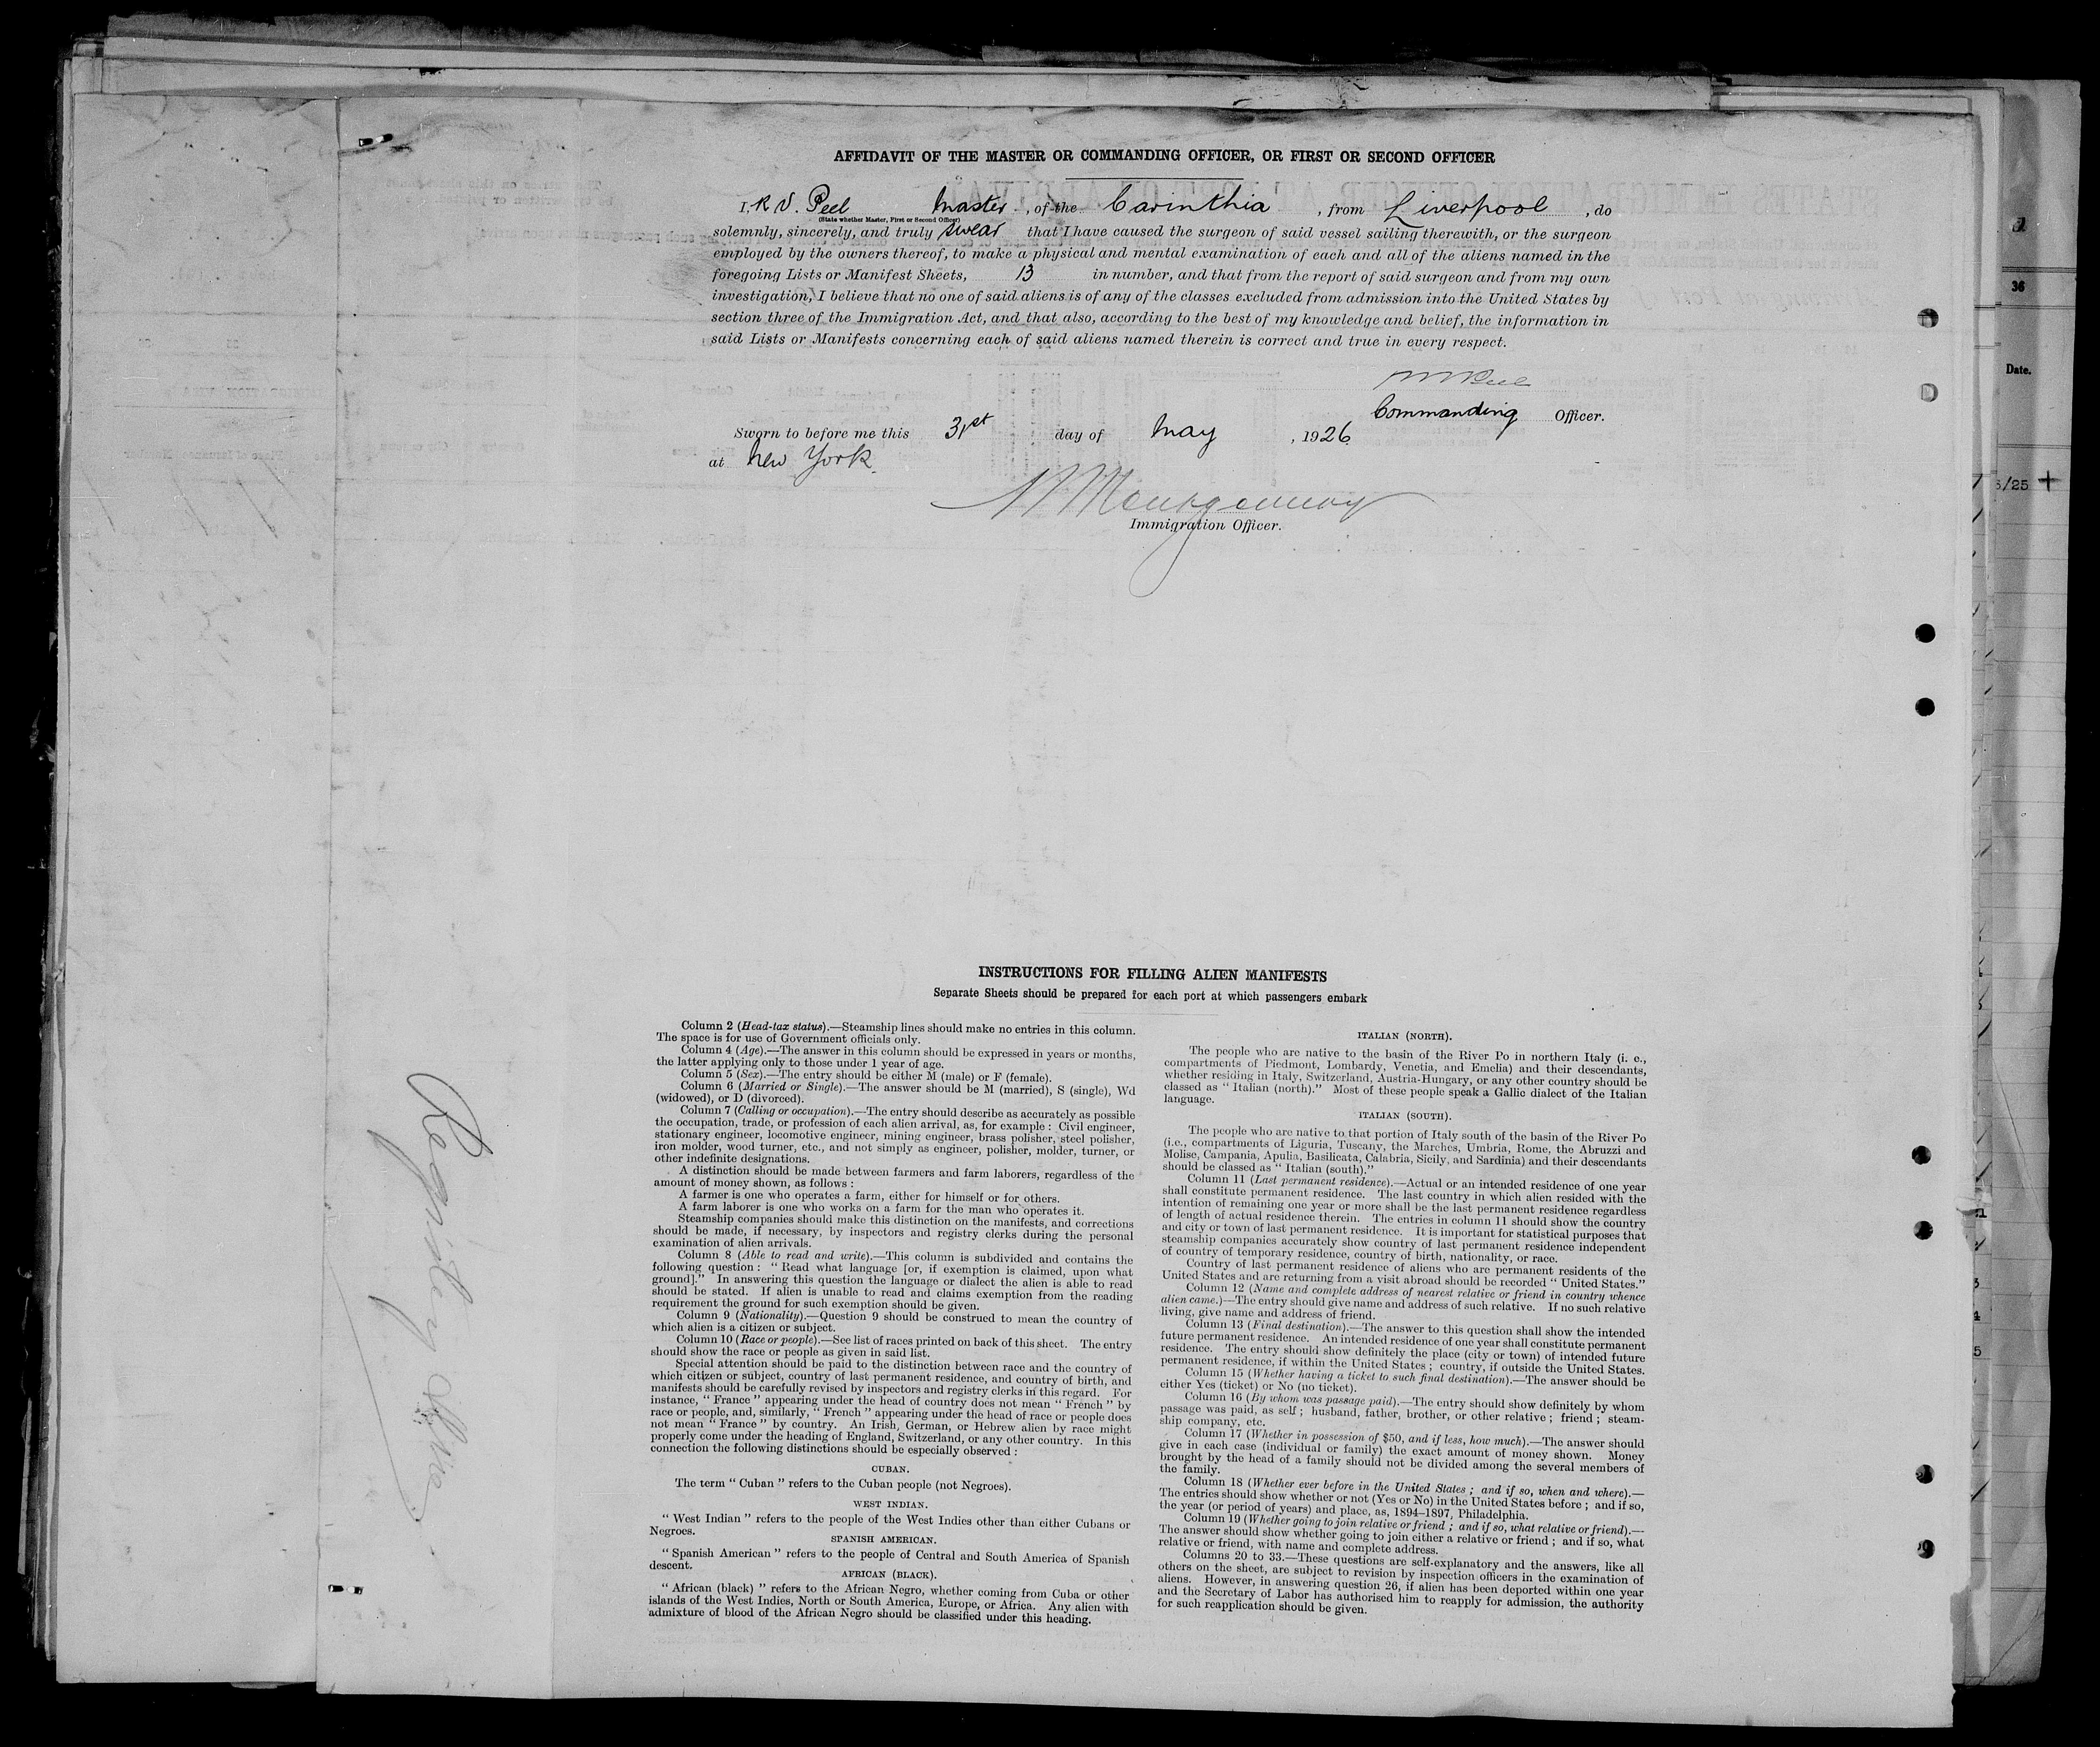 AFFIDAVIT OF THE MASTER OR COMMANDING OFFICER, OR FIRST OR SECOND OFFICER
I, R V. Peel Master, of the Carinthia, from Liverpool, do
(State whether Master, First or Second Officer)
solemnly, sincerely, and truly swear that I have caused the surgeon of said vessel sailing therewith, or the surgeon
employed by the owners thereof, to make a physical and mental examination of each and all of the aliens named in the
foregoing Lists or Manifest Sheets, 13 in number, and that from the report of said surgeon and from my own
investigation, I believe that no one of said aliens is of any of the classes excluded from admission into the United States by
section three of the Immigration Act, and that also, according to the best of my knowledge and belief, the information in
said Lists or Manifests concerning each of said aliens named therein is correct and true in every respect.
Commanding Officer.
Sworn to before me this 31st day of May, 1926
at New York.
Montgomery
Immigration Officer.
36
Date.
5/25
INSTRUCTIONS FOR FILLING ALIEN MANIFESTS
Separate Sheets should be prepared for each port at which passengers embark
Column 2 (Head-tax status).—Steamship lines should make no entries in this column.
The space is for use of Government officials only.
Column 4 (Age).—The answer in this column should be expressed in years or months,
the latter applying only to those under 1 year of age.
Column 5 (Sex).—The entry should be either M (male) or F (female).
Column 6 (Married or Single).—The answer should be M (married), S (single), Wd
(widowed), or D (divorced).
Column 7 (Calling or occupation).—The entry should describe as accurately as possible
the occupation, trade, or profession of each alien arrival, as, for example : Civil engineer,
stationary engineer, locomotive engineer, mining engineer, brass polisher, steel polisher,
iron molder, wood turner, etc., and not simply as engineer, polisher, molder, turner, or
other indefinite designations.
A distinction should be made between farmers and farm laborers, regardless of the
amount of money shown, as follows :
A farmer is one who operates a farm, either for himself or for others.
A farm laborer is one who works on a farm for the man who operates it.
Steamship companies should make this distinction on the manifests, and corrections
should be made, if necessary, by inspectors and registry clerks during the personal
examination of alien arrivals.
Column 8 (Able to read and write).—This column is subdivided and contains the
following question : “ Read what language [or, if exemption is claimed, upon what
ground].” In answering this question the language or dialect the alien is able to read
should be stated. If alien is unable to read and claims exemption from the reading
requirement the ground for such exemption should be given.
Column 9 (Nationality).—Question 9 should be construed to mean the country of
which alien is a citizen or subject.
Column 10 (Race or people).—See list of races printed on back of this sheet. The entry
should show the race or people as given in said list.
Special attention should be paid to the distinction between race and the country of
which citizen or subject, country of last permanent residence, and country of birth, and
manifests should be carefully revised by inspectors and registry clerks in this regard. For
instance, “ France ” appearing under the head of country does not mean “ French ” by
race or people, and, similarly, “ French ” appearing under the head of race or people does
not mean “ France ” by country. An Irish, German, or Hebrew alien by race might
properly come under the heading of England, Switzerland, or any other country. In this
connection the following distinctions should be especially observed :
CUBAN.
The term “ Cuban ” refers to the Cuban people (not Negroes).
WEST INDIAN.
“ West Indian ” refers to the people of the West Indies other than either Cubans or
Negroes.
SPANISH AMERICAN.
“ Spanish American ” refers to the people of Central and South America of Spanish
descent.
AFRICAN (BLACK).
“ African (black) ” refers to the African Negro, whether coming from Cuba or other
islands of the West Indies, North or South America, Europe, or Africa. Any alien with
admixture of blood of the African Negro should be classified under this heading.
ITALIAN (NORTH).
The people who are native to the basin of the River Po in northern Italy (i. e.,
compartments of Piedmont, Lombardy, Venetia, and Emelia) and their descendants,
whether residing in Italy, Switzerland, Austria-Hungary, or any other country should be
classed as “ Italian (north).” Most of these people speak a Gallic dialect of the Italian
language.
ITALIAN (SOUTH).
The people who are native to that portion of Italy south of the basin of the River Po
(i.e., compartments of Liguria, Tuscany, the Marches, Umbria, Rome, the Abruzzi and
Molise, Campania, Apulia, Basilicata, Calabria, Sicily, and Sardinia) and their descendants
should be classed as “ Italian (south).”
Column 11 (Last permanent residence).—Actual or an intended residence of one year
shall constitute permanent residence. The last country in which alien resided with the
intention of remaining one year or more shall be the last permanent residence regardless
of length of actual residence therein. The entries in column 11 should show the country
and city or town of last permanent residence. It is important for statistical purposes that
steamship companies accurately show country of last permanent residence independent
of country of temporary residence, country of birth, nationality, or race.
Country of last permanent residence of aliens who are permanent residents of the
United States and are returning from a visit abroad should be recorded “ United States.”
Column 12 (Name and complete address of nearest relative or friend in country whence
alien came.)—The entry should give name and address of such relative. If no such relative
living, give name and address of friend.
Column 13 (Final destination).—The answer to this question shall show the intended
future permanent residence. An intended residence of one year shall constitute permanent
residence. The entry should show definitely the place (city or town) of intended future
permanent residence, if within the United States ; country, if outside the United States.
Column 15 (Whether having a ticket to such final destination).—The answer should be
either Yes (ticket) or No (no ticket).
Column 16 (By whom was passage paid).—The entry should show definitely by whom
passage was paid, as self ; husband, father, brother, or other relative ; friend ; steam-
ship company, etc.
Column 17 (Whether in possession of $50, and if less, how much).—The answer should
give in each case (individual or family) the exact amount of money shown. Money
brought by the head of a family should not be divided among the several members of
the family.
Column 18 (Whether ever before in the United States ; and if so, when and where).—
The entries should show whether or not (Yes or No) in the United States before ; and if so,
the year (or period of years) and place, as, 1894–1897, Philadelphia.
Column 19 (Whether going to join relative or friend ; and if so, what relative or friend).—
The answer should show whether going to join either a relative or friend ; and if so, what
relative or friend, with name and complete address.
Columns 20 to 33.—These questions are self-explanatory and the answers, like all
others on the sheet, are subject to revision by inspection officers in the examination of
aliens. However, in answering question 26, if alien has been deported within one year
and the Secretary of Labor has authorised him to reapply for admission, the authority
for such reapplication should be given.
Registry